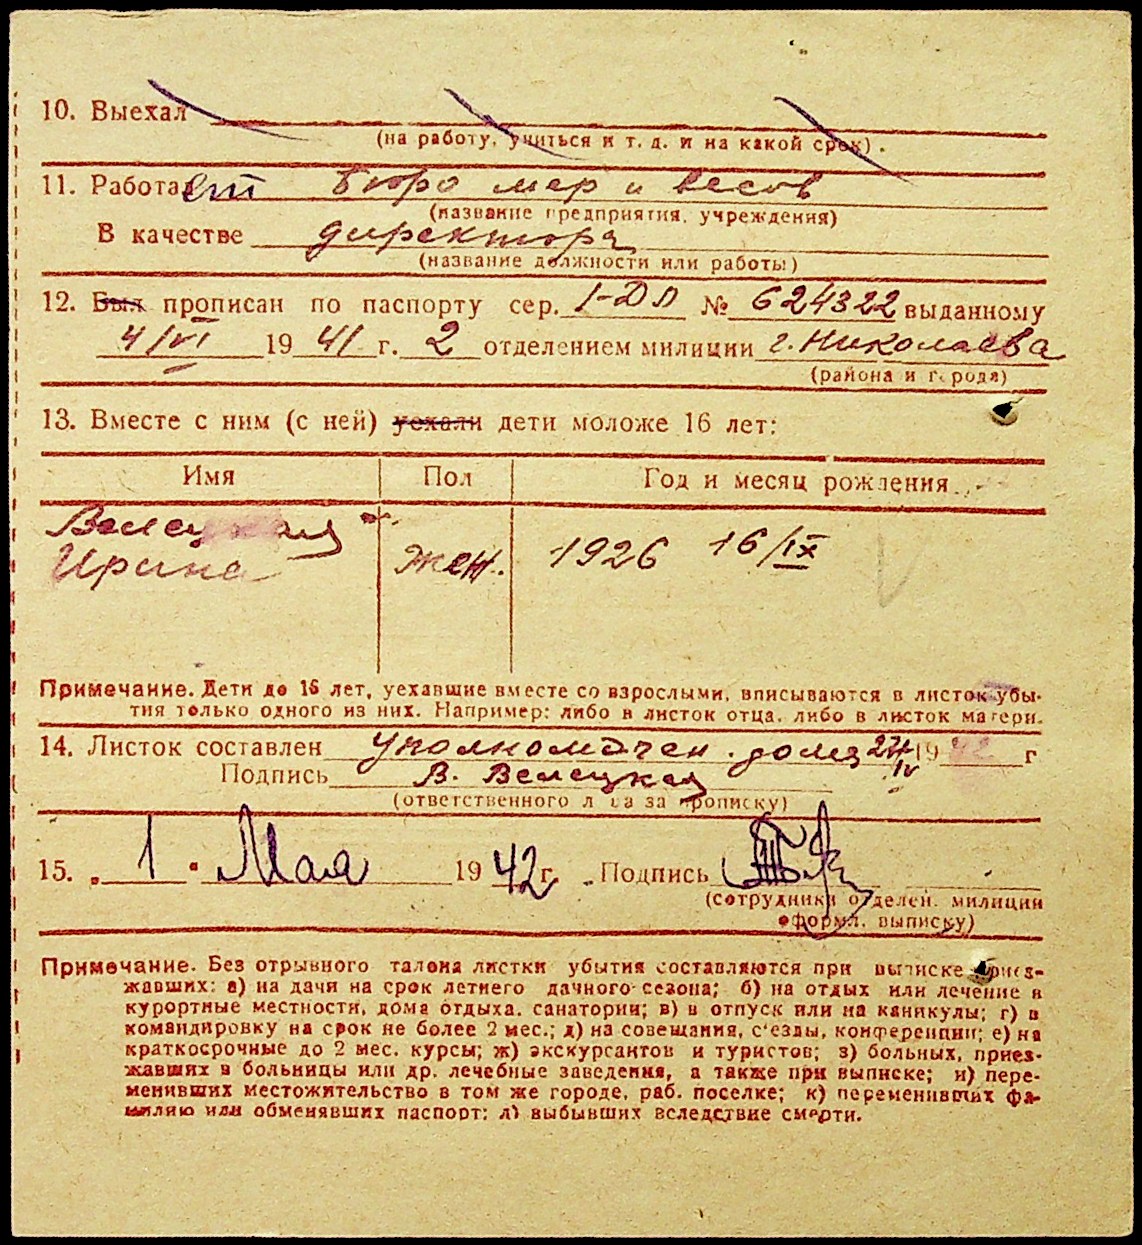 10. Выехал
(на работу, учиться и т. д. и на какой срок).
11. Работает Бюро мер и весов
(название предприятия, учреждения)
В качестве директора
(название должности или работы)
12. Был прописан по паспорту сер. I-ДП № 624322 выданному
4/VI 1941 г. 2 отделением милиции г. Николаева
(района и города)
13. Вместе с ним (с ней) уехали дети моложе 16 лет:
Имя Пол Год и месяц рождения
Велецкая
Ирина жен. 1926 16/IX
Примечание. Дети до 16 лет, уехавшие вместе со взрослыми, вписываются в листок убы-
тия только одного из них. Например: либо в листок отца, либо в листок матери.
14. Листок составлен уполномочен. дома 27/IV 1942 г
Подпись В. Велецкая
(ответственного лица за прописку)
15. „ 1 " Мая 1942 г. Подпись
(сотрудника отделен. милиции
оформл. выписку)
Примечание. Без отрывного талона листки убытия составляются при выписке приез-
жавших: а) на дачи на срок летнего дачного сезона; б) на отдых или лечение в
курортные местности, дома отдыха, санатории; в) в отпуск или на каникулы; г) в
командировку на срок не более 2 мес.; д) на совещания, с'езды, конференции; е) на
краткосрочные до 2 мес. курсы; ж) экскурсантов и туристов; з) больных, приез-
жавших в больницы или др. лечебные заведения, а также при выписке; и) пере-
менивших местожительство в том же городе, раб. поселке; к) переменивших фа-
милию или обменявших паспорт; л) выбывших вследствие смерти.